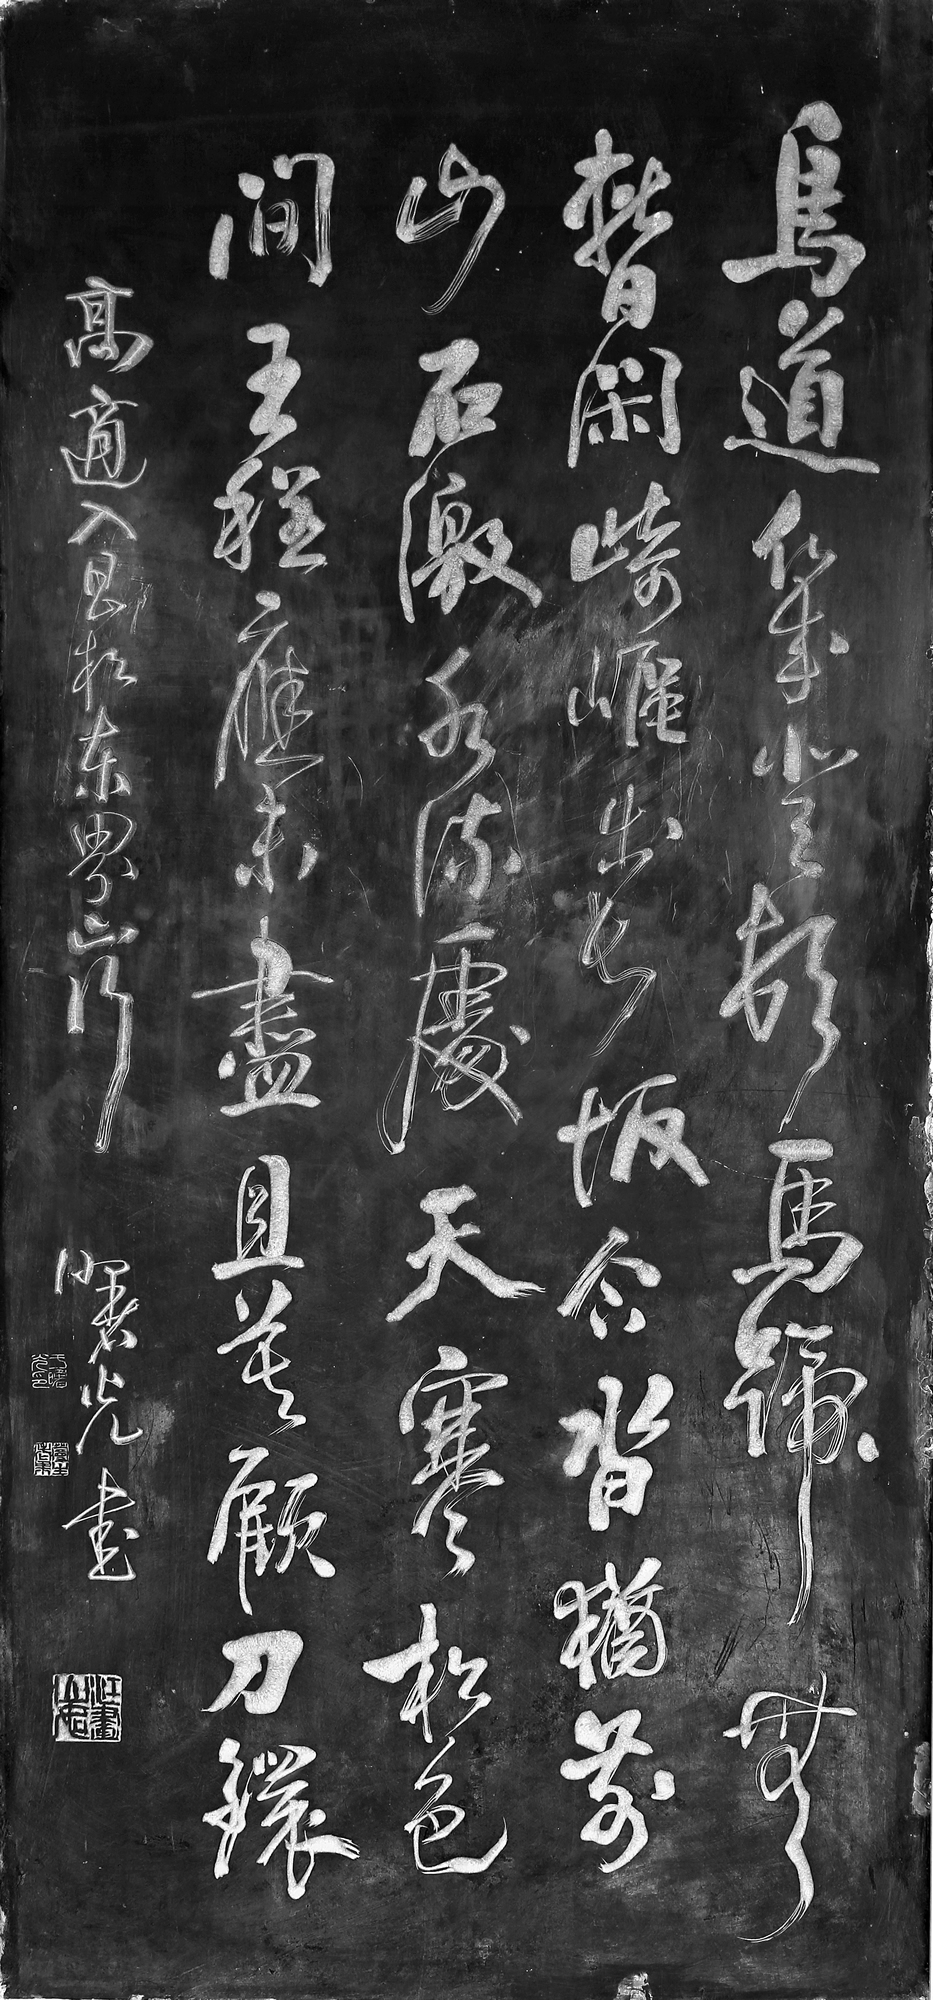 鳥道幾登頓馬蹄無
暫閑崎嶇出長坂合沓猶前
山石激水流處天寒松色
間王程應未盡且莫顧刀鐶
高適入昌松東界山行 曙光書